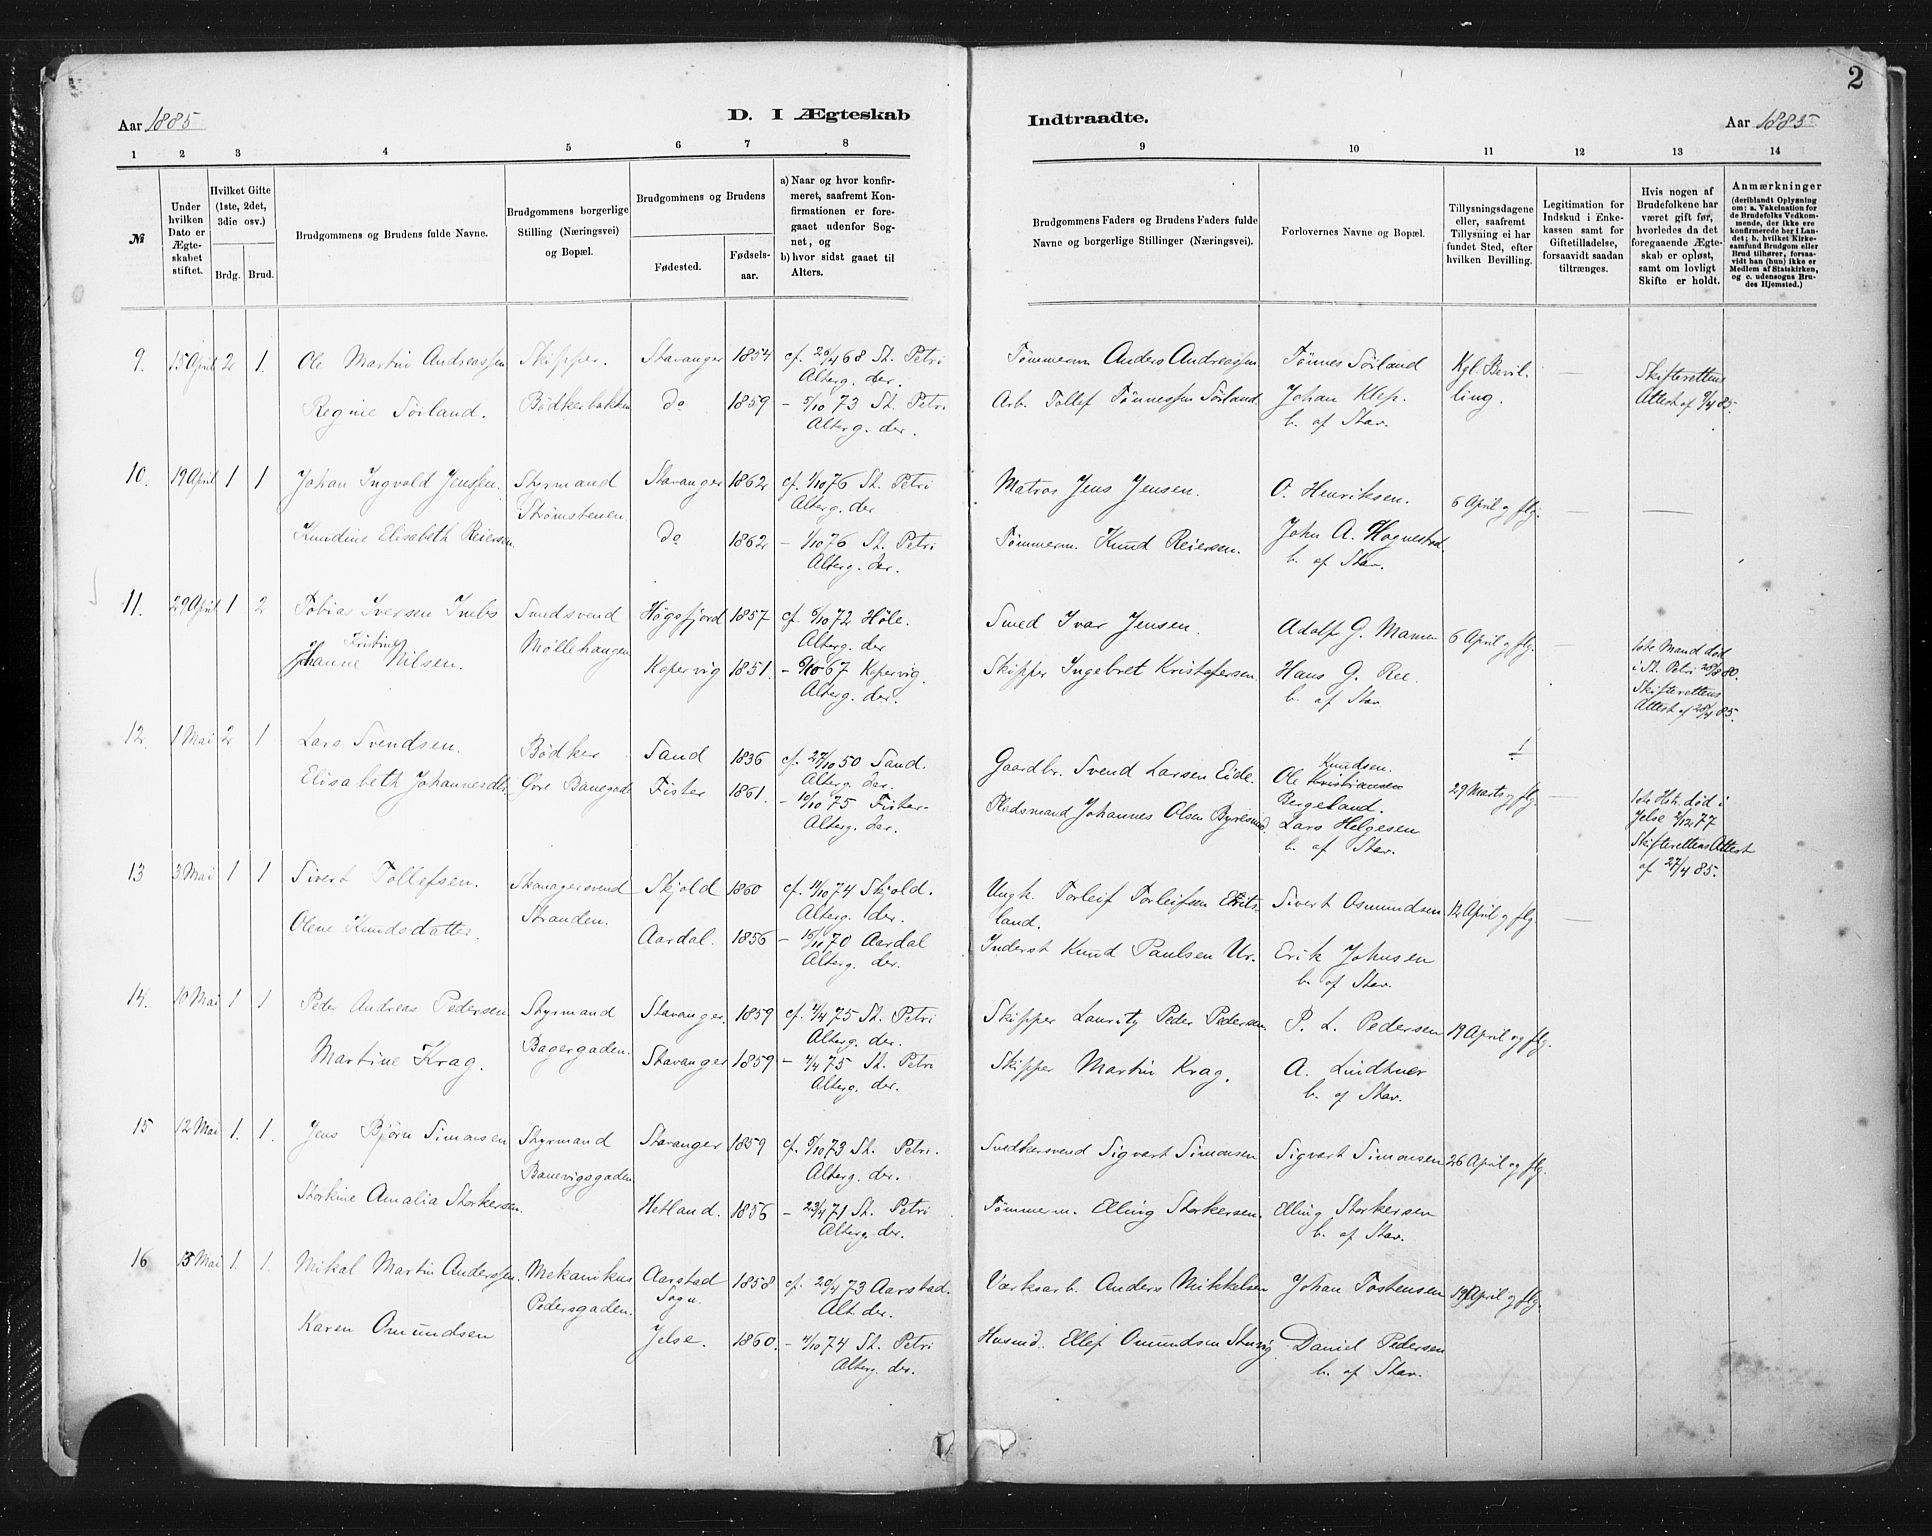 2
Aar 1885
D. I Ægteskab
Indtraadte.
Aar 1885
1 2 3 4 5 6 7 8 9 10 11 12 13 14
№
Under hvilken Dato er Ægteskabet stiftet.
Hvilket Gifte (1ste, 2det, 3die osv.)
Brdg. Brud.
Brudgommens og Brudens fulde Navne.
Brudgommens borgerlige Stilling (Næringsvei) og Bopæl.
Brudgommens og Brudens
Fødested. Fødselsaar.
a) Naar og hvor konfirmeret, saafremt Konfirmationen er foregaaet udenfor Sognet, og
b) hvor sidst gaaet til Alters.
Brudgommens Faders og Brudens Faders fulde Navne og borgerlige Stillinger (Næringsvei).
Forlovernes Navne og Bopæl.
Tillysningsdagene eller, saafremt Tillysning ei har fundet Sted, efter hvilken Bevilling.
Legitimation for Indskud i Enkekassen samt for Giftetilladelse, forsaavidt saadan tiltrænges.
Hvis nogen af Brudefolkene har været gift før, hvorledes da det foregaaende Ægteskab er opløst, samt om lovligt Skifte er holdt.
Anmærkninger
(deriblandt Oplysning om: a. Vakcination for de Brudefolks Vedkommende, der ikke ere konfirmerede her i Landet; b. hvilket Kirkesamfund Brudgom eller Brud tilhører, forsaavidt han (hun) ikke er Medlem af Statskirken, og c. udensogns Brudes Hjemsted.)
9. 15 April 2 1. Ole Martin Andreassen Skipper. Stavanger 1854 cf. 20/4 68 St. Petri
Alterg. der.
Regine Sörland. Bödkerbakken do 1859 – 5/10 73 St. Petri
Alterg. der.
Tømmerm. Anders Andreassen Tönnes Sörland Kgl. Bevil- — Skifterettens
Arb. Tollef Tönnessen Sörland. Johan Klep. ling. Attest af 9/4 85.
b. af Stav.
10. 19 April 1 1 Johan Ingvald Jenssen. Styrmand Stavanger 1862 cf. 1/10 76 St. Petri
Strömstenen. Alterg. der
Knudine Elisabeth Reiersen do 1862 – 1/10 76 St. Petri
Alterg. der.
Matros Jens Jensen. O. Henriksen. 6 April og flg. — —
Tømmerm. Knud Reiersen. John A. Hognestad
b. af Stav.
11. 29 April 1 2 Tobias Iversen Smedsvend Høgsfjord 1857 cf. 6/10 72 Høle.
Alterg. der
Kristine
Johanne Nilsen. Møllehaugen Kopervig 1851. – 6/10 67 Kopervig.
Alterg. der.
Smed Ivar Jensen. Adolf G. Mamen 6 April og flg. — 1ste Mand död
i St. Petri 28/8 80.
Skipper Ingebret Kristofersen. Hans G. Ree. Skifterettens
b. af Stav. Attest af 28/4 85.
12. 1 Mai 2 1 Lars Svendsen. Bödker Sand 1836 cf. 27/10 50 Sand.
Alterg. der.
Elisabeth Johannesdtr. Øvre Banegade Fister 1861. – 10/10 75 Fister.
Alterg. der.
Gaardbr. Svend Larsen Eide. Knudsen.
Ole Kristiansen
Bergeland. 29 Marts og flg. — 1ste Hstr. död i
Pladsmand Johannes Olsen Lars Helgesen Jelse 2/12 77
b. af Stav. Skifterettens Attest
af 27/4 85.
13 3 Mai 1 1 Sivert Tollefsen. Skomagersvend Skjold 1860 cf. 11/10 74 Skjold.
Alterg. der.
Olene Knudsdatter. Stranden. Aardal. 1856 – 16/10 70 Aardal
Alterg. der.
Ungk. Torleif Torleifsen Sivert Osmundsen 12 April og flg. —
land.
Inderst Knud Paulsen Ur. Erik Johnsen
b. af Stav.
14. 10 Mai 1 1 Peder Andreas Pedersen Styrmand Stavanger. 1859 cf. 4/4 75 St. Petri
Alterg. der.
Martine Krag. Bagergaden. Stavanger 1859 – 4/4 75 St. Petri
Alterg. der.
Skipper Lauritz Peder Pedersen. P. L. Pedersen 19 April og flg.
Skipper Martin Krag. A. Lindtner
b. af Stav.
15 12 Mai 1. 1. Jens Bjørn Simonsen Styrmand Stavanger 1859 cf. 5/10 73 St. Petri.
Banevigsgaden Alterg. der.
Storkine Amalia Storkersen. Hetland. 1856 – 23/4 71 St. Petri
Alterg. der.
Snedkersvend Sigvart Simonsen Sigvart Simonsen 26 April og flg.
Tømmerm. Elling Storkersen. Elling Storkersen
b. af Stav.
16 15 Mai 1. 1. Mikal Martin Anderssen. Mekanikus Aarstad 1858 cf. 20/4 73 Aarstad.
Sogn. Alt. der.
Karen Omundsen Pedersgaden. Jelse. 1860. – 4/10 74 St. Petri
Alterg. der.
Værksarb. Anders Mikkelsen Johan Tostensen 19 April og flg.
Husmd. Ellef Omundsen Daniel Pedersen
b. af Stav.